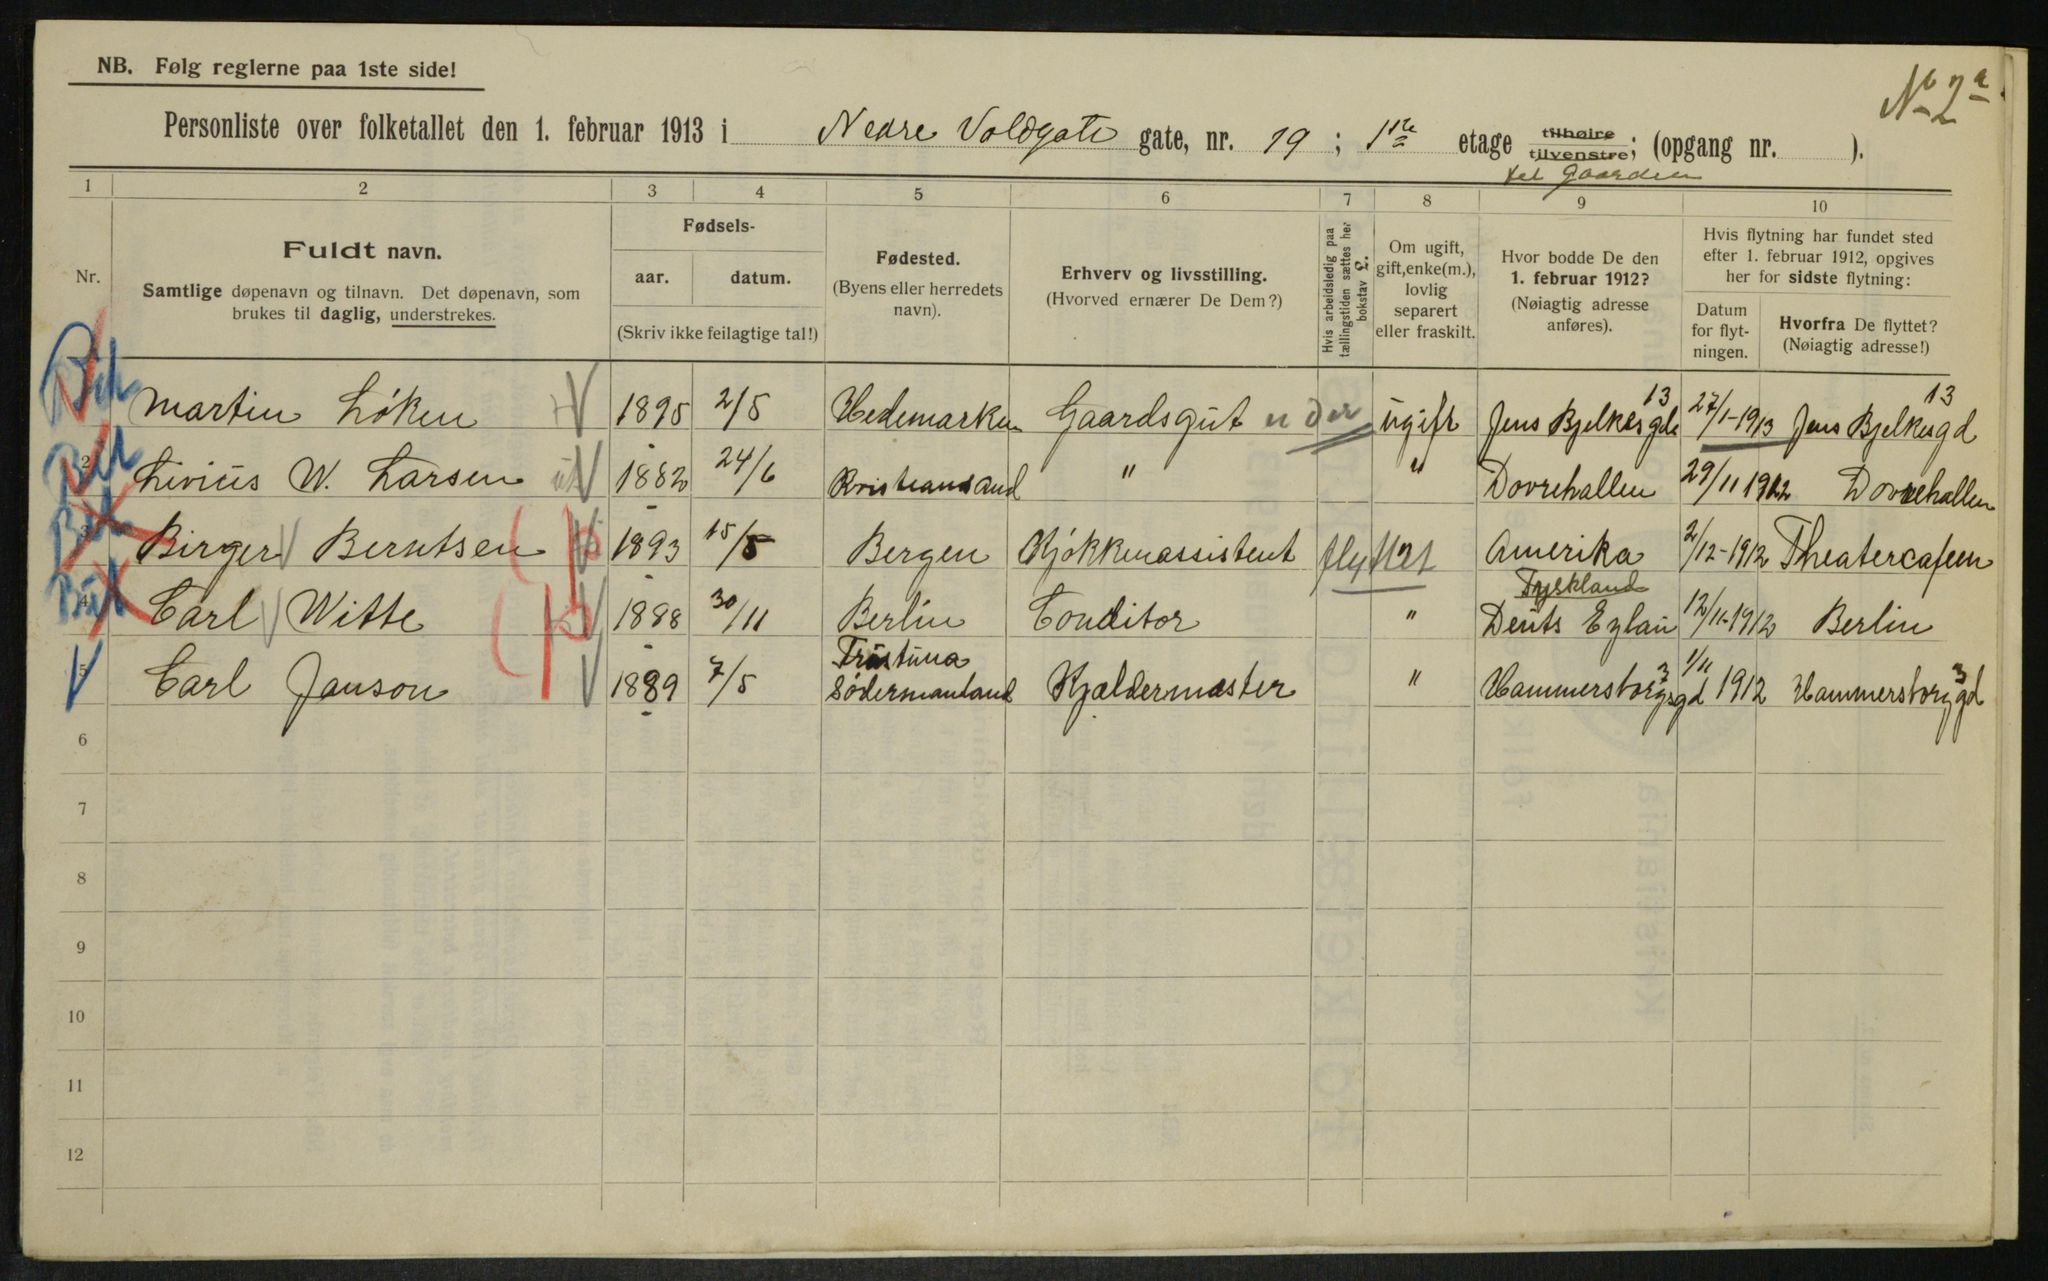 NB. Følg reglerne paa 1ste side!
No 2a
Personliste over folketallet den 1. februar 1913 i Nedre Voldgate gate, nr. 19 ; 1ste etage tilhøire tilvenstre; (opgang nr. ).
til Gaarden
1 2 3 4 5 6 7 8 9 10
Nr.
Fuldt navn.
Samtlige døpenavn og tilnavn. Det døpenavn, som
brukes til daglig, understrekes.
Fødsels-
aar. datum.
(Skriv ikke feilagtige tal!)
Fødested.
(Byens eller herredets
navn).
Erhverv og livsstilling.
(Hvorved ernærer De Dem?)
Hvis arbeidsledig paa
tællingstiden sættes her
bokstav L.
Om ugift,
gift, enke(m.),
lovlig
separert
eller fraskilt.
Hvor bodde De den
1. februar 1912?
(Nøiagtig adresse
anføres).
Hvis flytning har fundet sted
efter 1. februar 1912, opgives
her for sidste flytning:
Datum
for flyt-
ningen.
Hvorfra De flyttet?
(Nøiagtig adresse!)
Martin Løken 1895 2/5 Hedemarken Gaardsgut ugift Jens Bjelkesgde 13 27/1-1913 Jens Bjelkesgd 13
2 Livius W. Larsen 1882 24/6 Kristiansand " " Dovrehallen 29/11 1912 Dovrehallen
3 Birger Berntsen 1893 15/5 Bergen Kjøkkenassistent flyttet " Amerika 2/12-1912 Theatercafeen
4 Carl Witte 1888 30/11 Berlin Conditor " Tyskland Deuts Eylau 12/11-1912 Berlin
5 Carl Janson 1889 7/5 Södermanland Kjældermester " Hammersborgsgd 3 1/11 1912 Hammersborggd 3
6
7
8
9
10
11
12